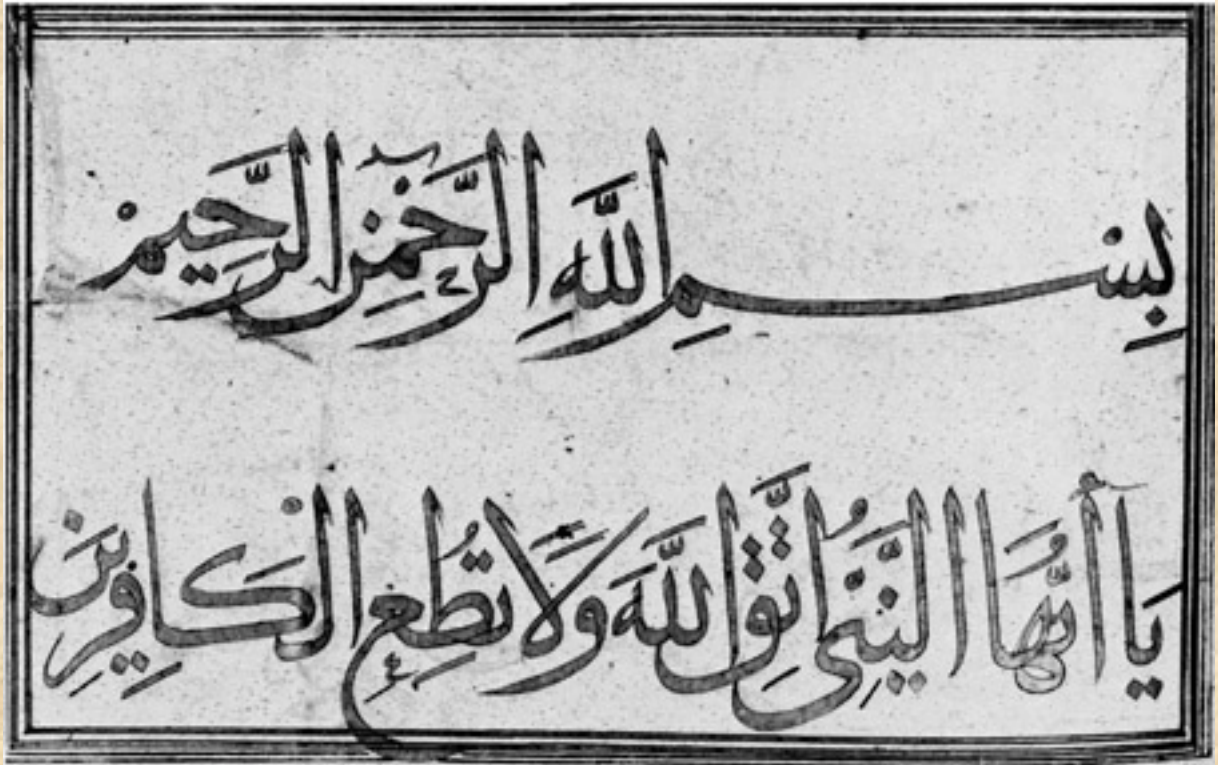 بِسْمِ اللَّهِ الرَّحْمٰنِ الرَّحِيمْ
يَا أَيُّهَا النَّبِيُّ اتَّقِ اللَّهَ وَلَا تُطِعِ الْكَافِرِينَ